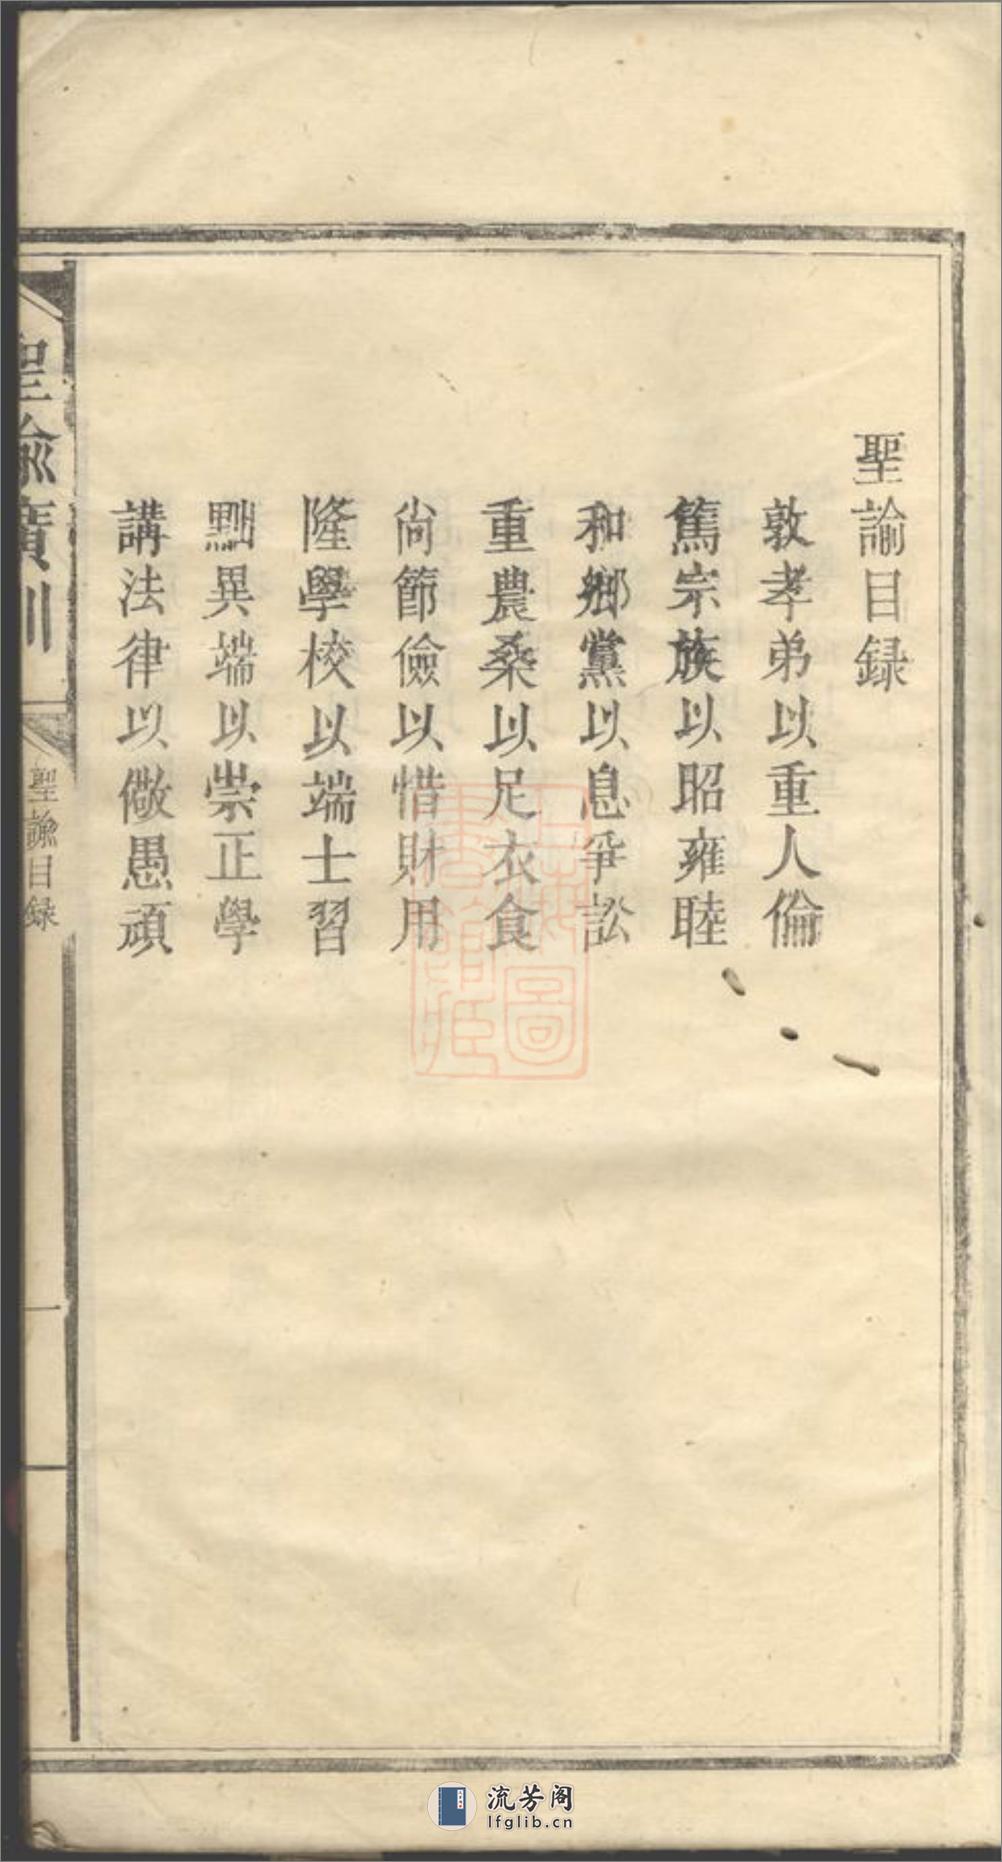 聖諭目録
敦孝弟以重人倫
篤宗族以昭雍睦
和鄉黨以息爭訟
重農桑以足衣食
尙節儉以惜財用
隆學校以端士習
黜異端以崇正學
講法律以儆愚頑
聖諭廣訓
聖諭目録
一
流芳阁
lfglib.cn